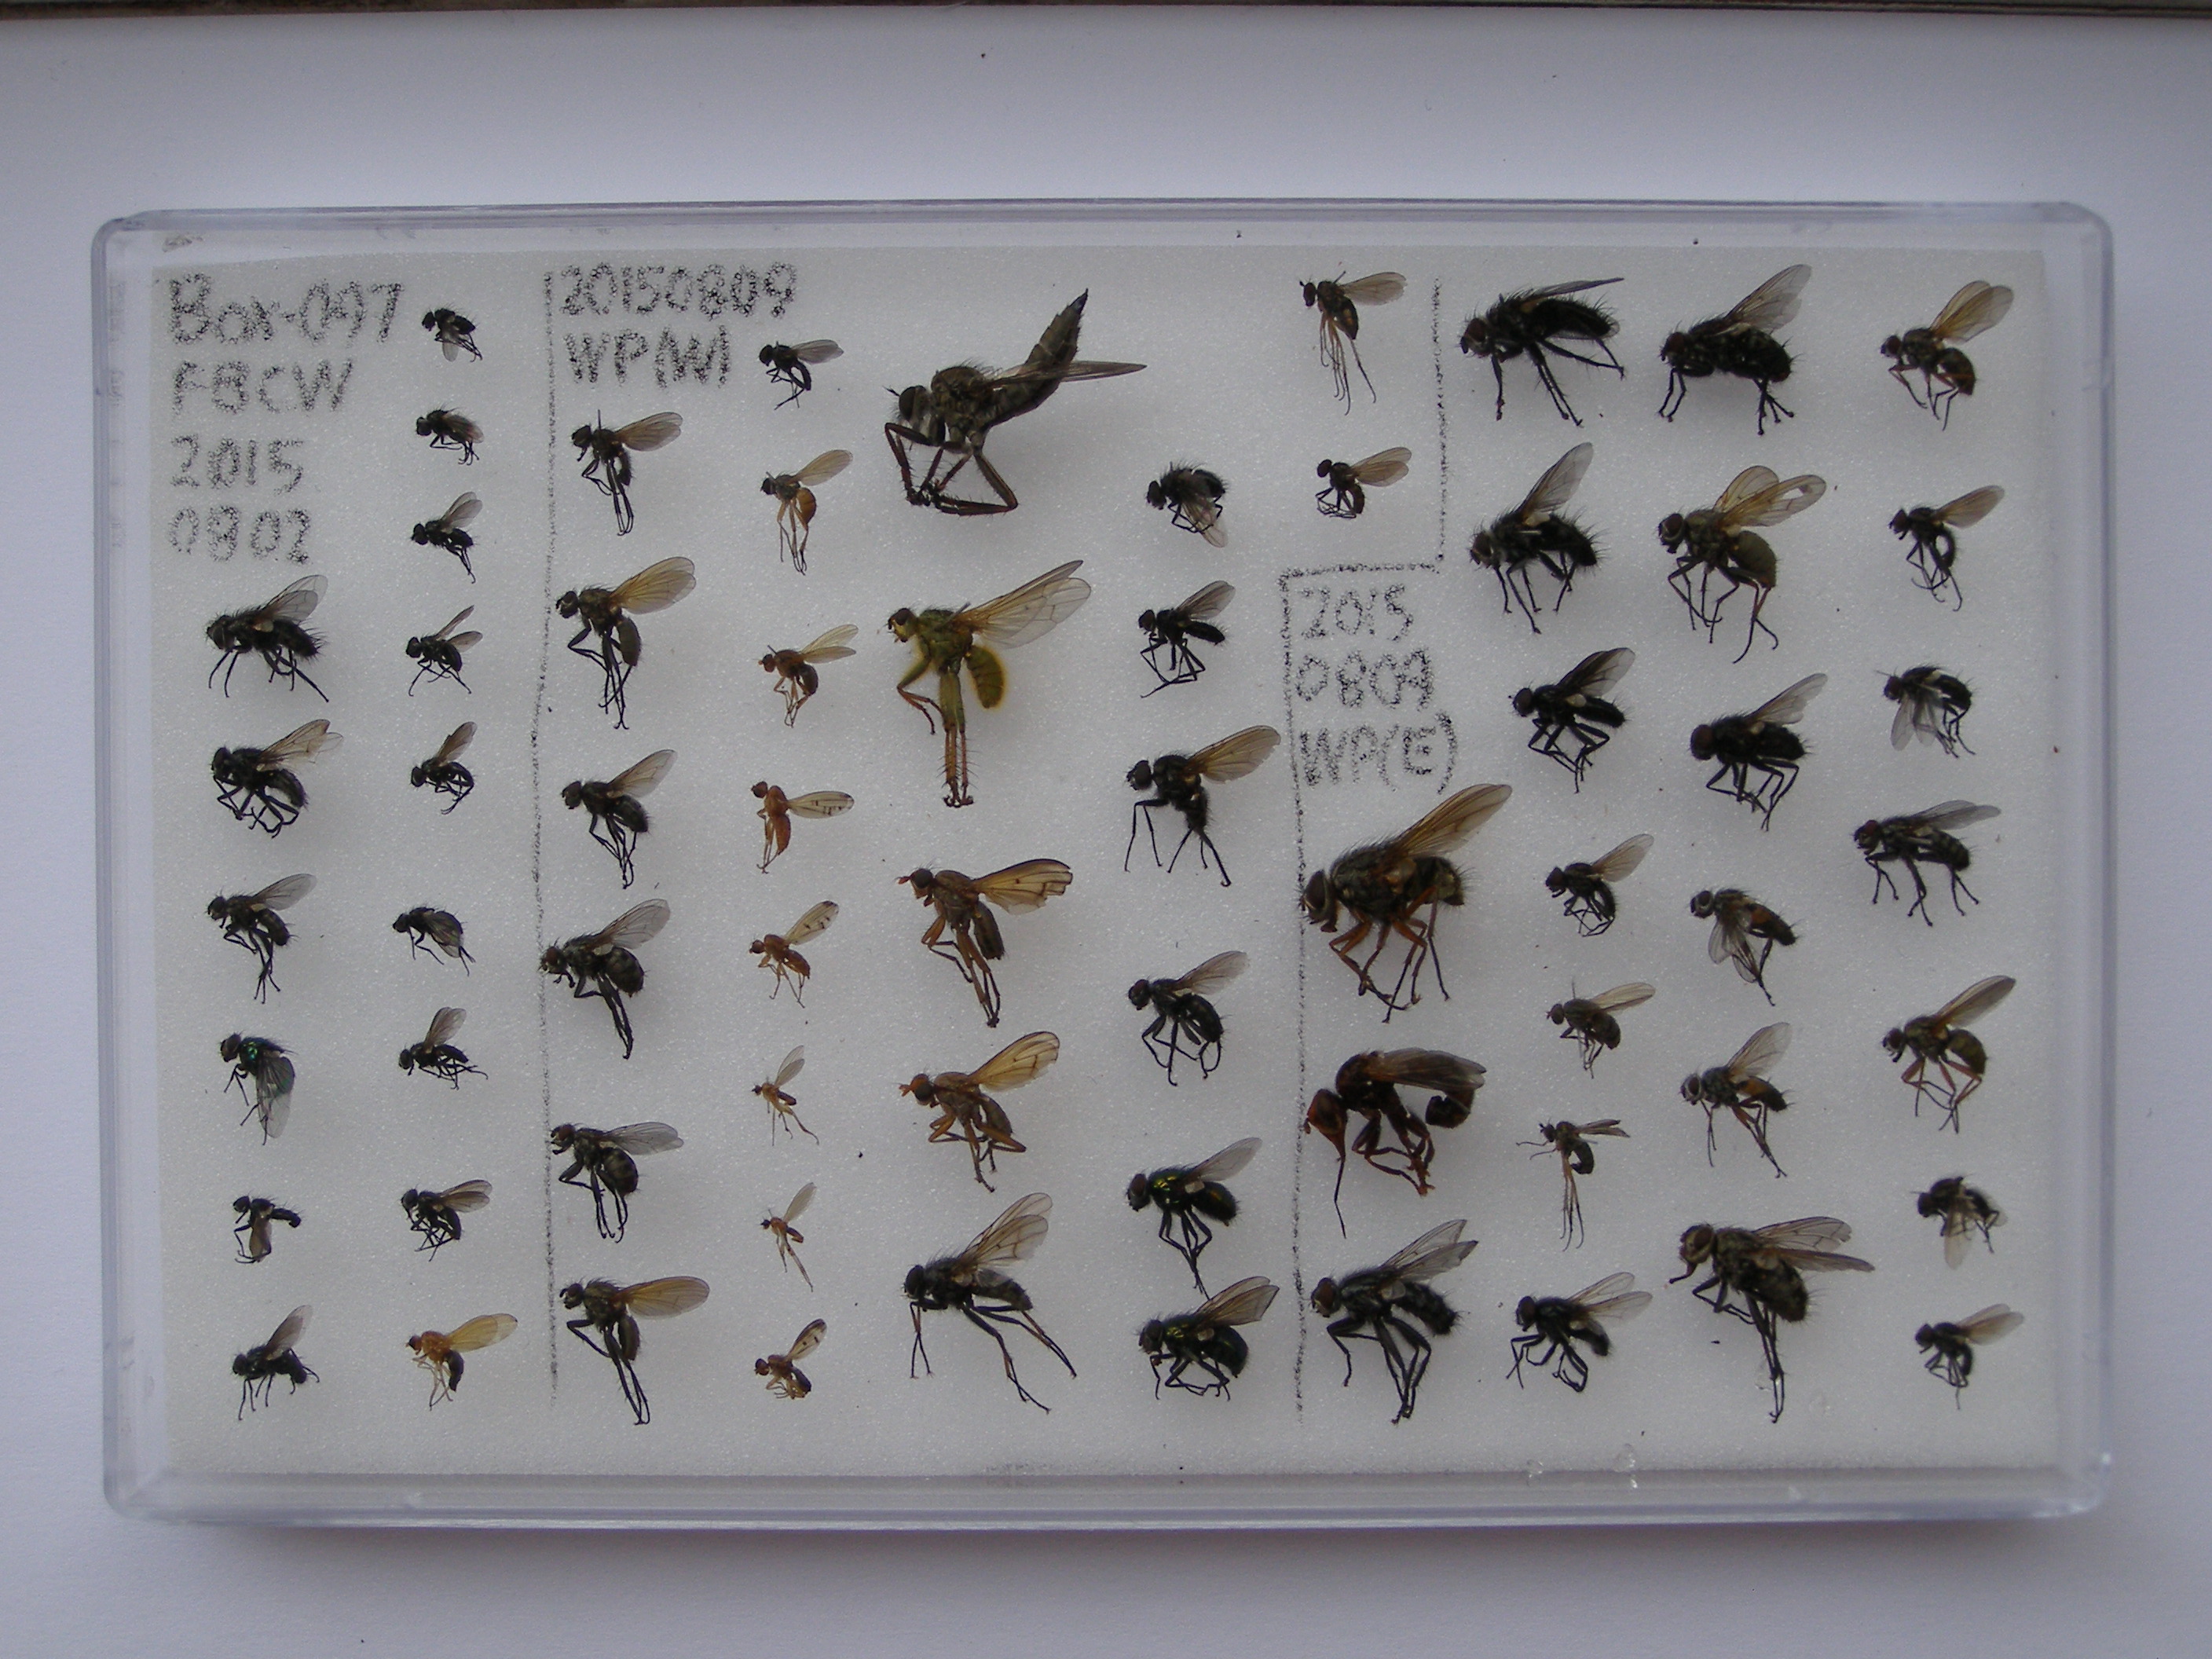 Box-097
FBCW
2015
0802
20150809
WP(W)
2015
0809
WP(E)